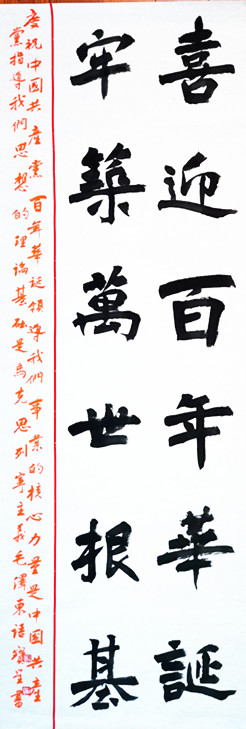 喜迎百年華誕
牢築萬世根基
慶祝中國共產黨百年華誕領導我們事業的核心力量是中國共產
黨指導我們思想的理論基礎是馬克思列寧主義毛澤東語